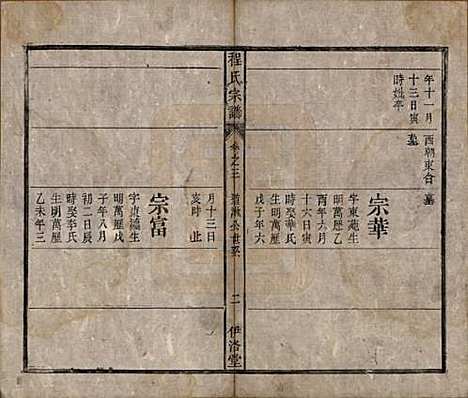 年十一月
十三日寅
時娶卒
墓
西朝東合墓
宗華
字東菀生
明萬歷乙
酉年六月
十六日寅
時娶李氏
生明萬歷
戊子年六
程氏宗譜
卷之三
公世系
二
伊洛堂
月十三日
亥時 止
宗富
字貴 生
明萬歷戊
子年八月
初二日辰
時娶李氏
生明萬歷
乙未年三